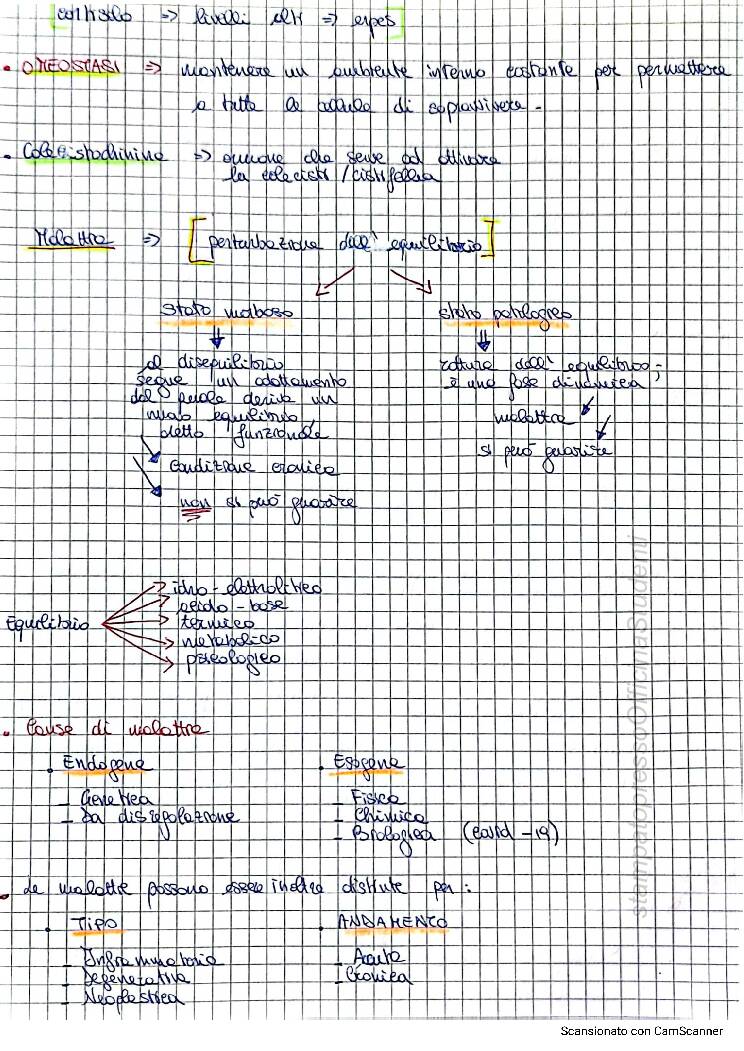 [cortisolo => livelli alti => erpes]
• OMEOSTASI => mantenere un ambiente interno costante per permettere
a tutte le cellule di sopravvivere.
• Colecistochinina => ormone che serve ad attivare
la colecisti / cistifellea
Malattia => [perturbazione dell' equilibrio]
stato morboso
stato patologico
al disequilibrio
segue un adattamento
dal quale deriva un
nuovo equilibrio,
detto funzionale
condizione cronica
non si può guarire
rottura dell' equilibrio;
è una fase dinamica
malattia
si può guarire
Equilibrio
idro-elettrolitico
acido-base
termico
metabolico
psicologico
• Cause di malattia
• Endogene
- Genetica
- Da disregolazione
• Esogene
- Fisica
- Chimica
- Biologica (covid-19)
• Le malattie possono essere inoltre distinte per:
• TIPO
- Infiammatoria
- Degenerativa
- Neoplastica
• ANDAMENTO
- Acuta
- Cronica
stampatopressoOfficinaStudenti
Scansionato con CamScanner